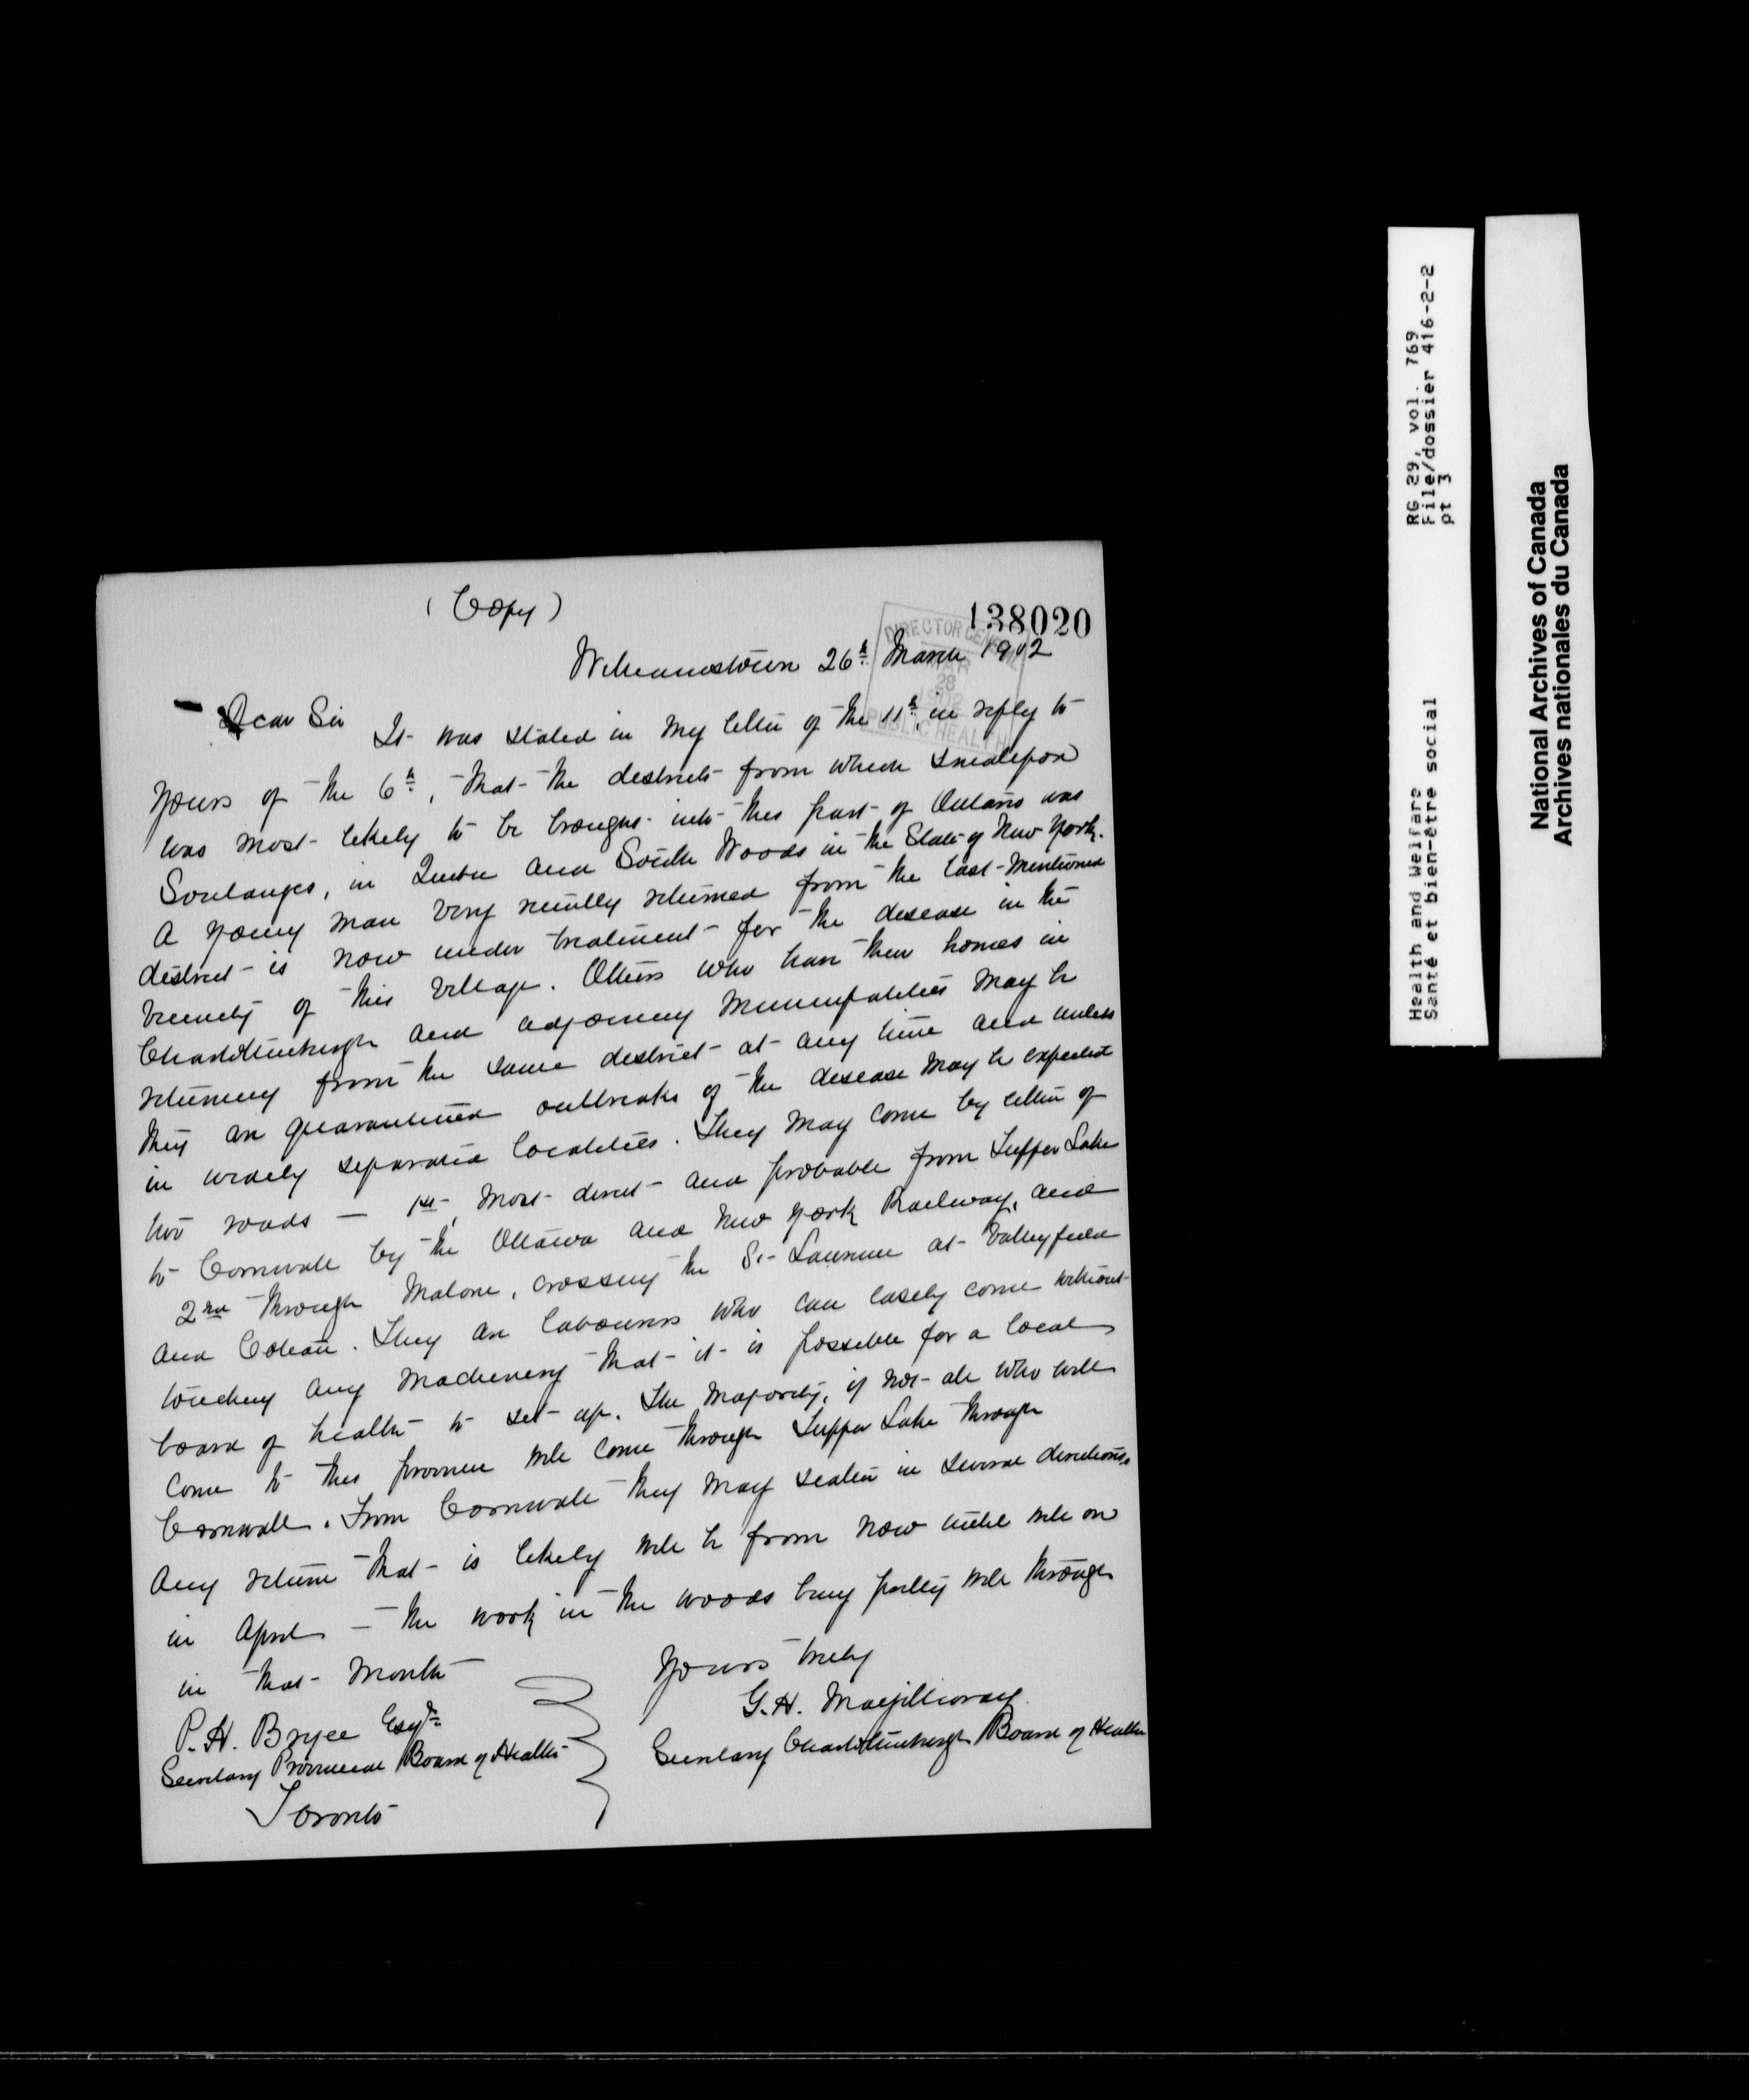 (Copy)
138020
DIRECTOR GENERAL
MAR
28
1902
PUBLIC HEALTH
Williamstown 26th March 1902
Dear Sir
It was stated in my letter of the 11th, in reply to
yours of the 6th, that the districts from which smallpox
was most likely to be brought into this part of Ontario was
Soulanges, in Quebec and South Woods in the State of New York.
A young man very recently returned from the last-mentioned
district is now under treatment for the disease in the
vicinity of this village. Others who have their homes in
Charlottenburgh and adjoining municipalities may be
returning from the same district at any time and unless
they are quarantined outbreaks of the disease may be expected
in widely separated localities. They may come by either of
two roads — 1st, most direct and probable from Tupper Lake
to Cornwall by the Ottawa and New York Railway, and
2nd through Malone, crossing the St Lawrence at Valleyfield
and Coteau. They are labourers who can easily come without
touching any machinery that it is possible for a local
board of health to set up. The majority, if not all who will
come to this province will come through Tupper Lake through
Cornwall. From Cornwall they may scatter in several directions.
Any return that is likely will be from now until well on
in April — the work in the woods being partly well through
in that month
Yours truly
G. H. Macgillivray
Secretary Charlottenburgh Board of Health
P. H. Bryce Esqre
Secretary Provincial Board of Health
Toronto
Health and Welfare
Santé et bien-être social
RG 29, vol. 769
File/dossier 416-2-2
pt 3
National Archives of Canada
Archives nationales du Canada